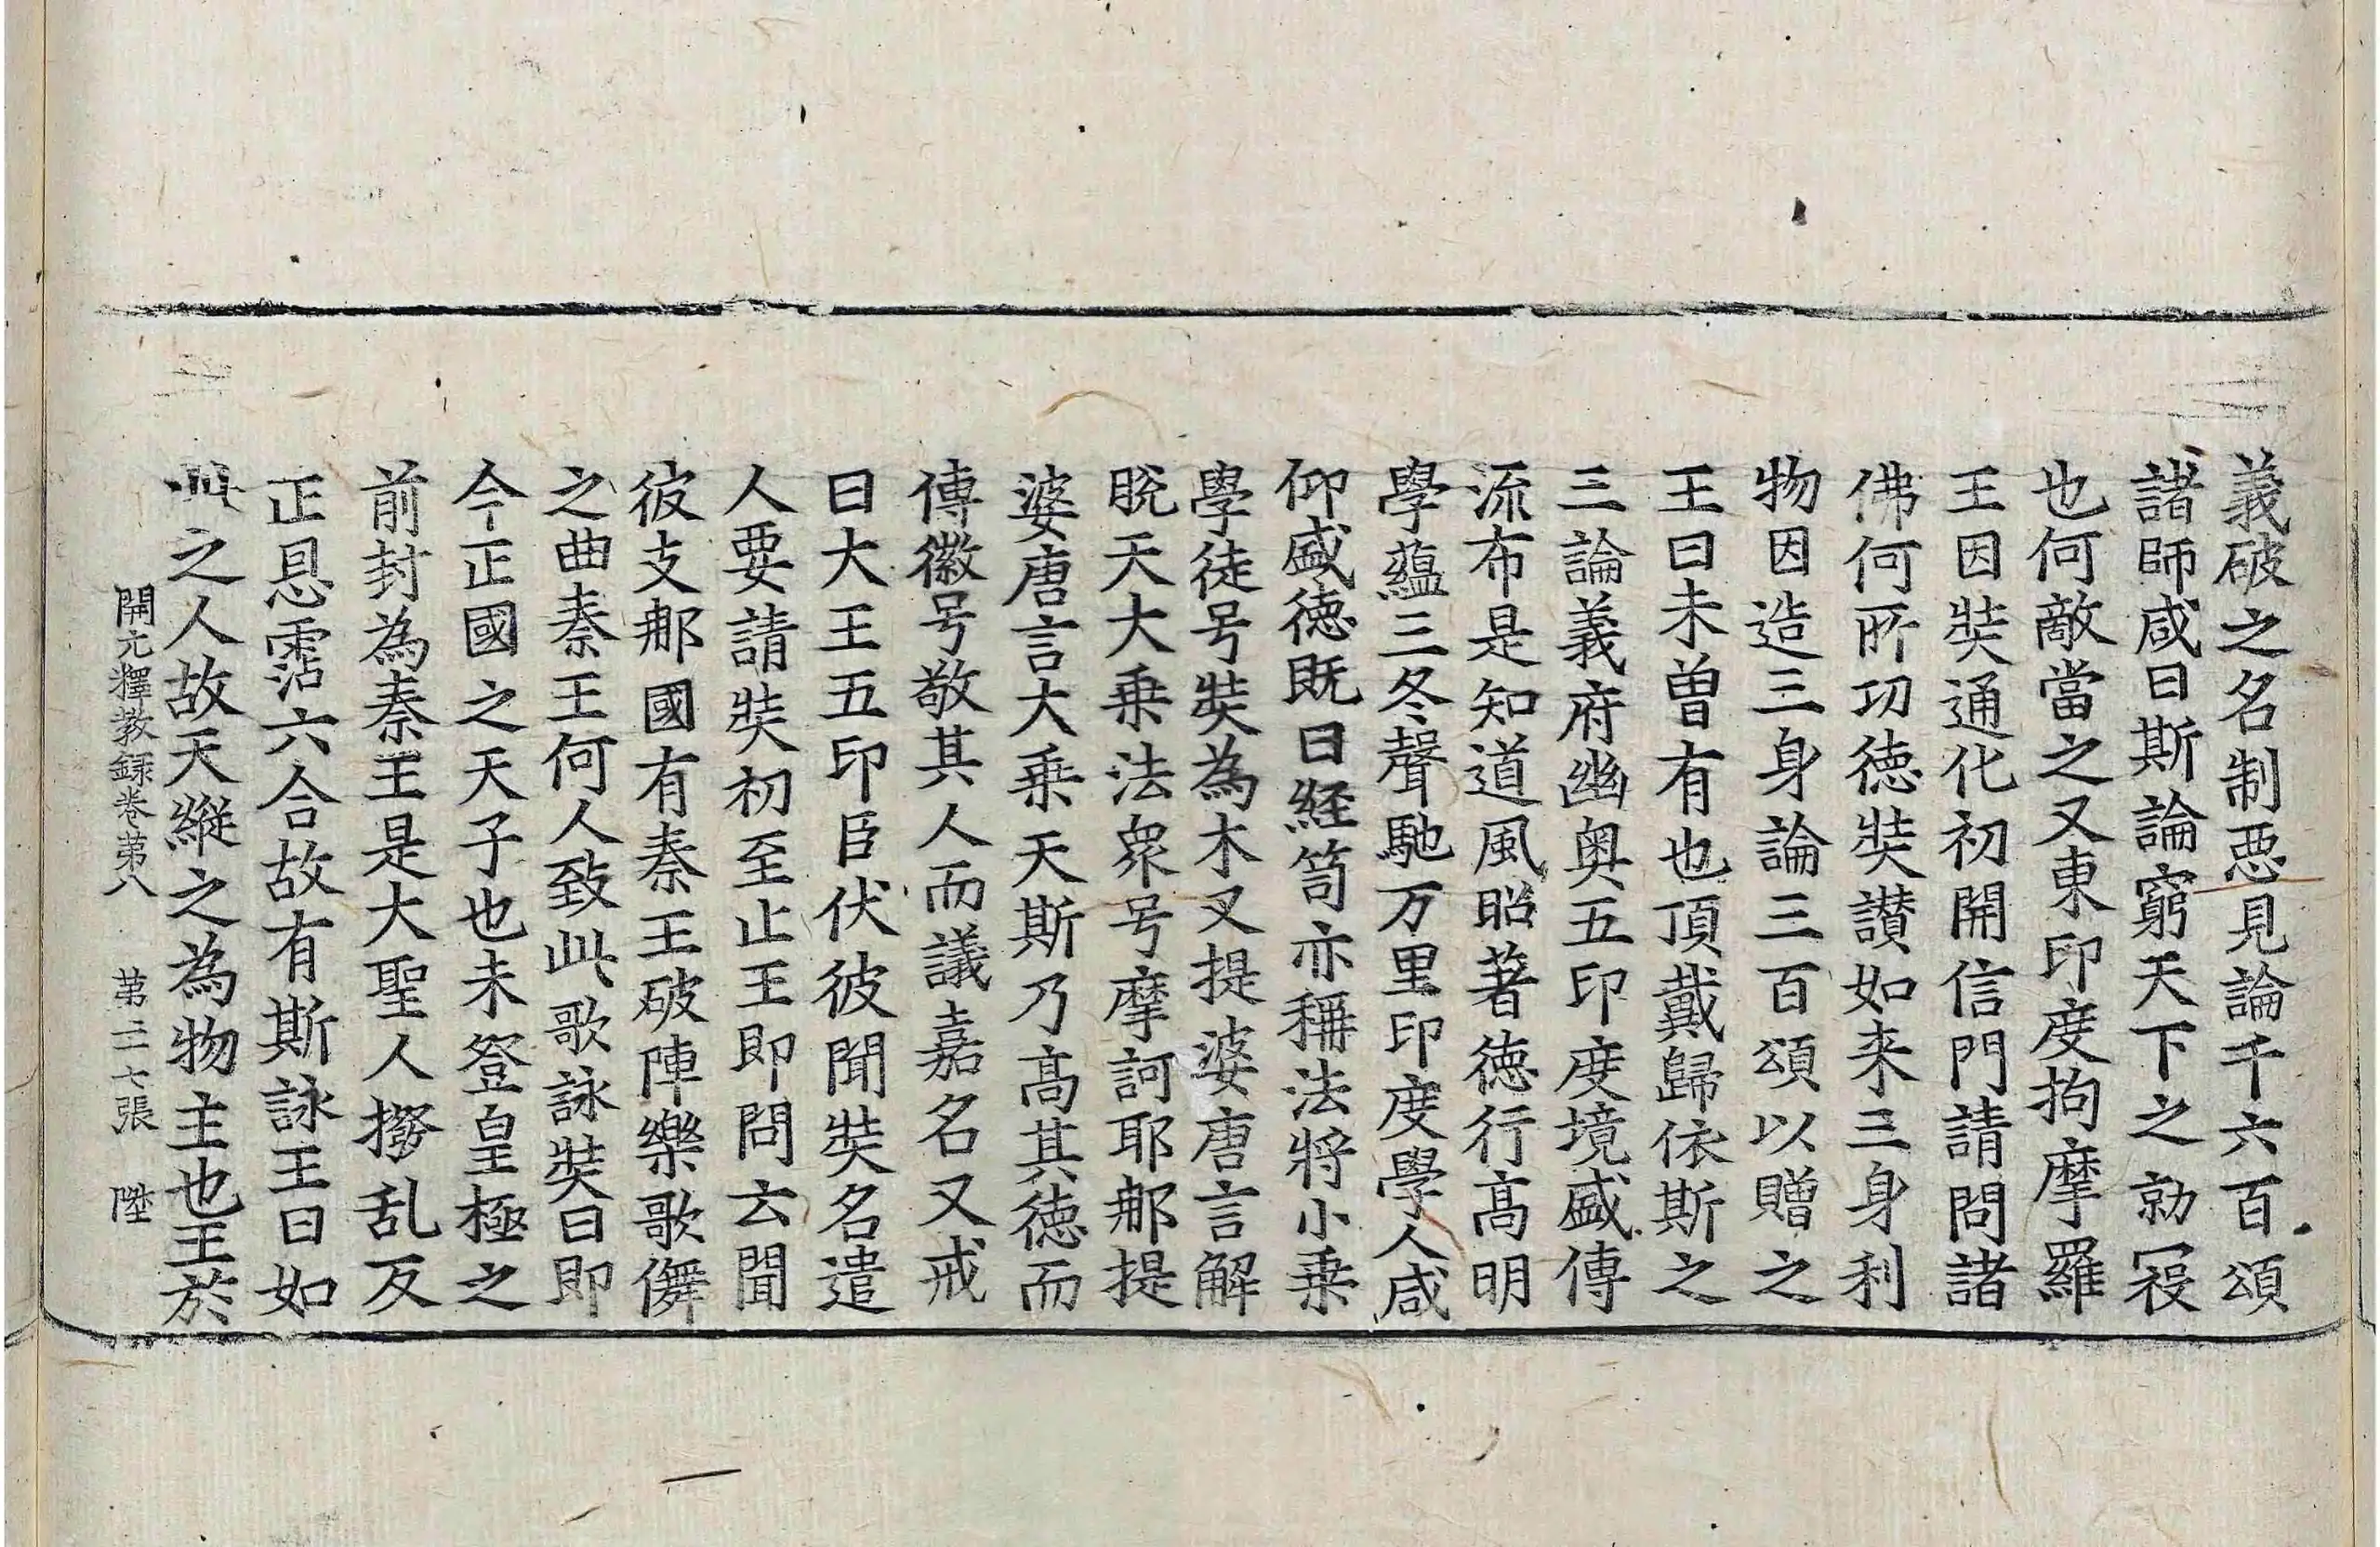 義破之名制惡見論千六百頌
諸師咸曰斯論窮天下之勍寇
也何敵當之又東印度拘摩羅
王因奘通化初開信門請問諸
佛何所功德奘讃如来三身利
物因造三身論三百頌以贈之
王曰未曾有也頂戴歸依斯之
三論義府幽奥五印度境盛傳
流布是知道風昭著德行髙明
學蘊三冬聲馳万里印度學人咸
仰盛德既曰経笥亦稱法將小乗
學徒号奘為木叉提婆唐言解
脱天大乗法衆号摩訶耶那提
婆唐言大乗天斯乃髙其德而
傳徽号敬其人而議嘉名又戒
日大王五印臣伏彼聞奘名遣
人要請奘初至止王即問云聞
彼支那國有秦王破陣樂歌儛
之曲秦王何人致此歌詠奘曰即
今正國之天子也未登皇極之
前封為秦王是大聖人撥乱反
正恩霑六合故有斯詠王曰如
此之人故天縱之為物主也王於
開元釋教録卷苐八　苐二十七張　陞